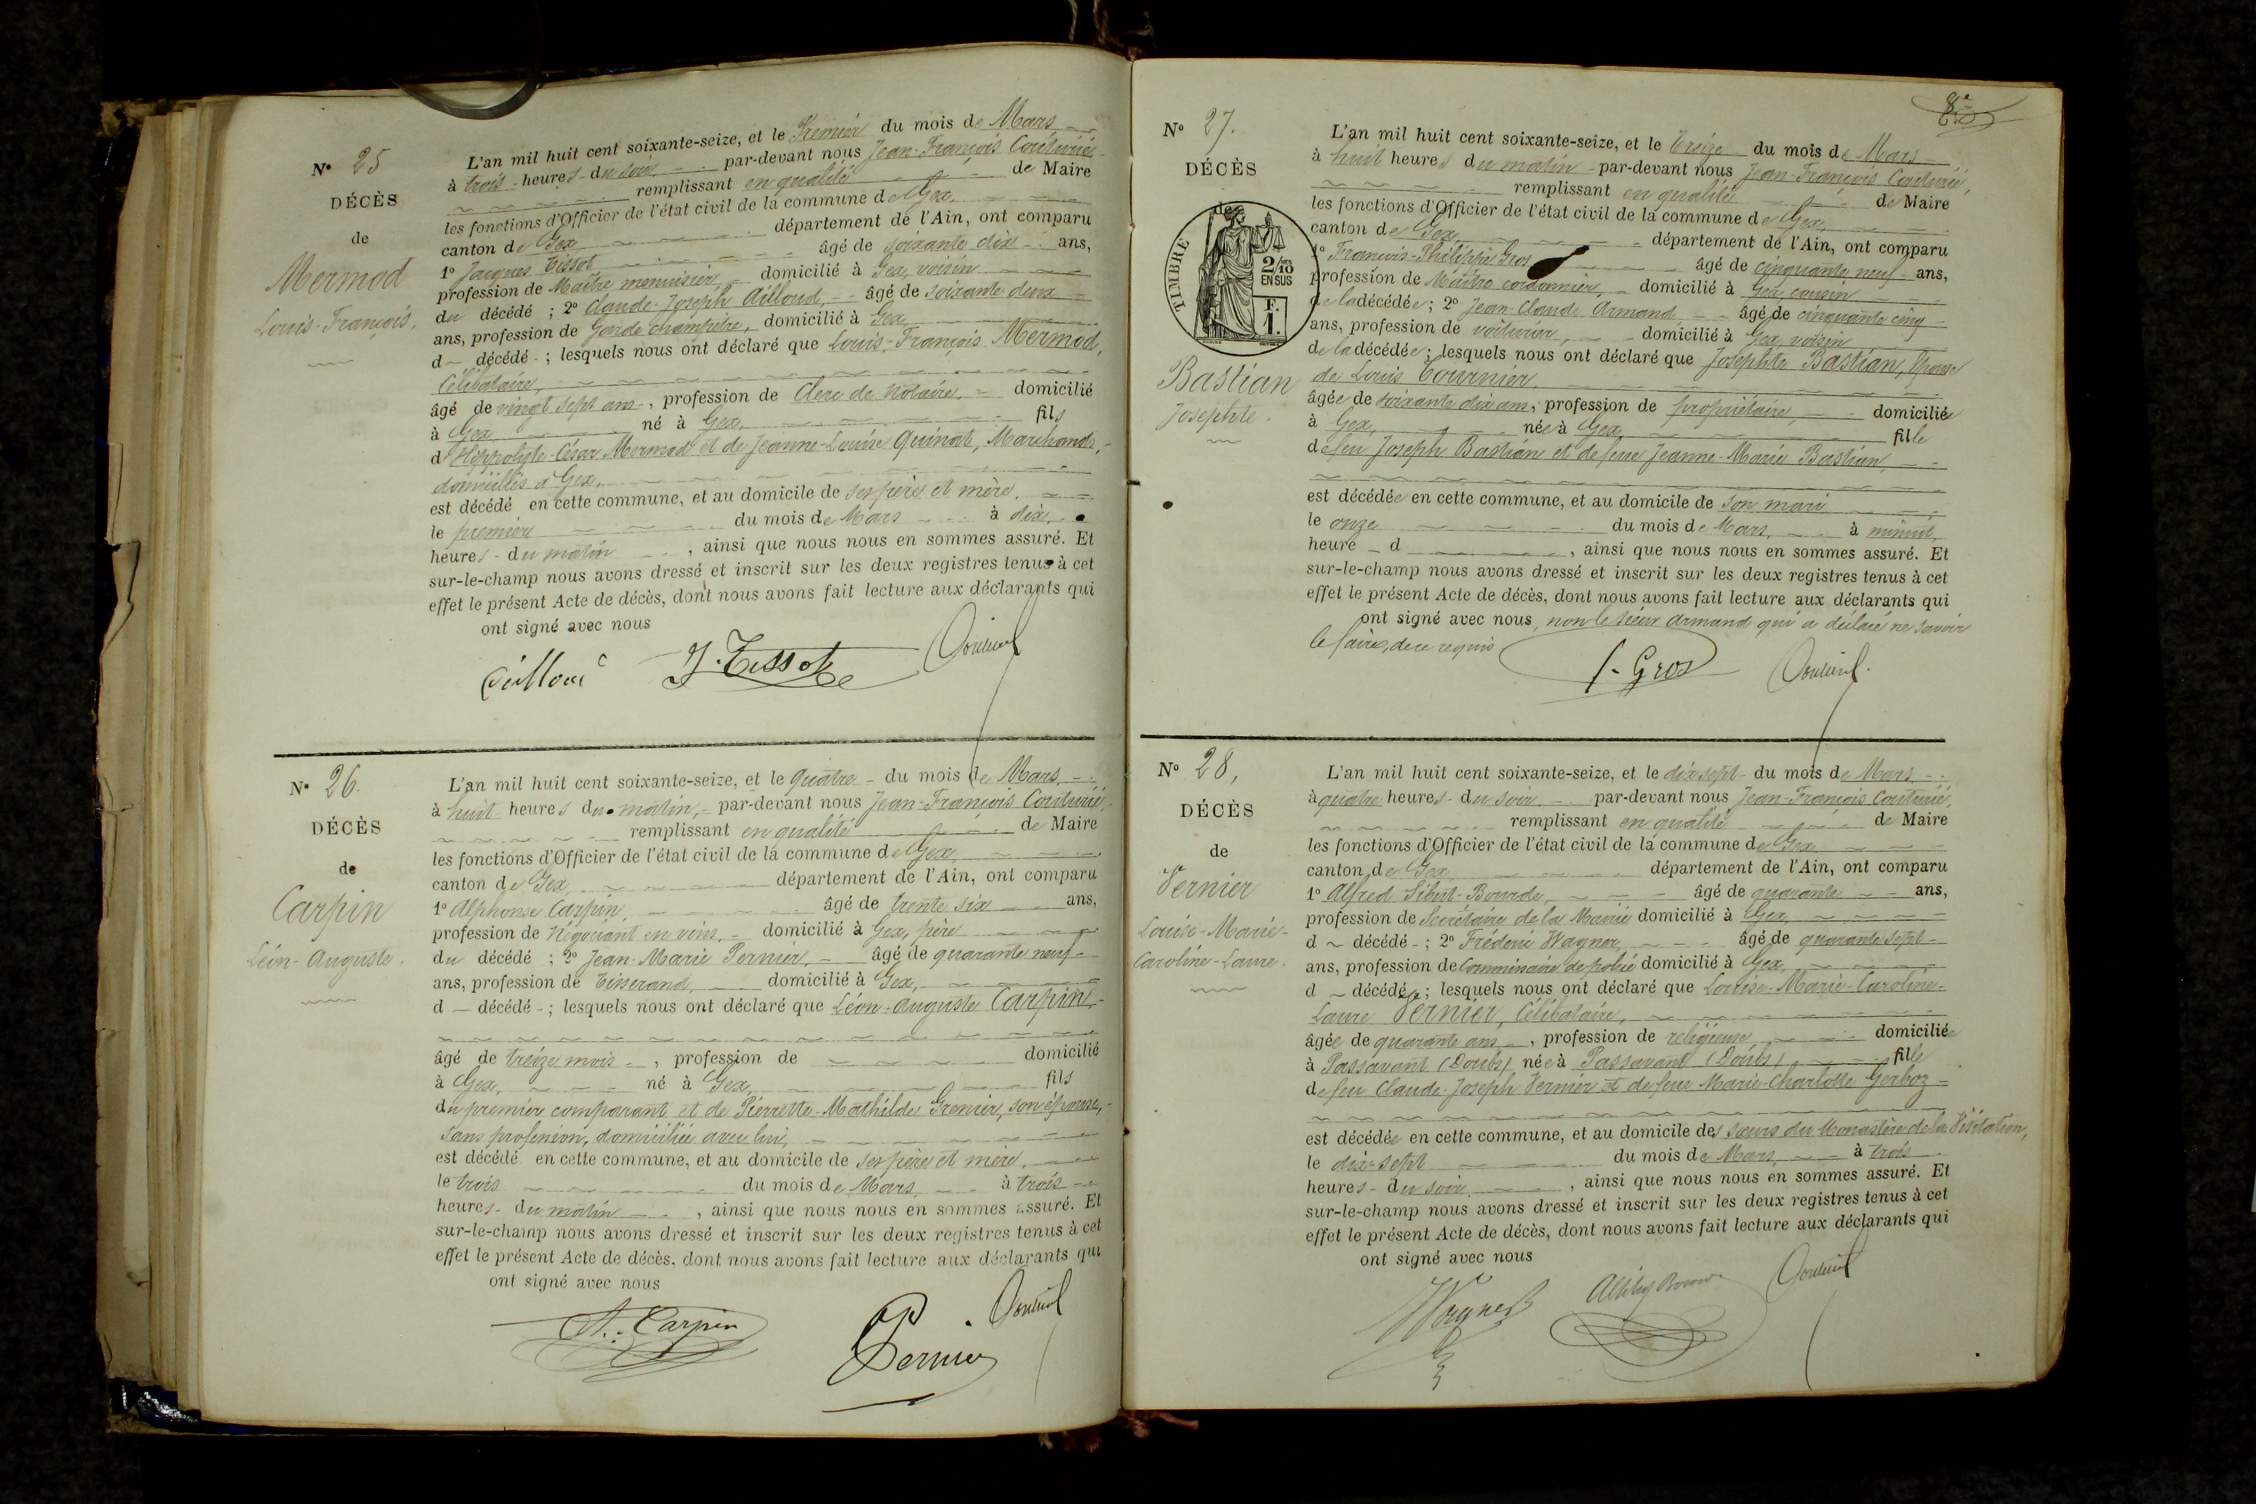 N° 25
DÉCÈS
de
Mermod
Louis-François.
L'an mil huit cent soixante-seize, et le Premier du mois de Mars
à trois heures du soir par-devant nous Jean-François Couturié
remplissant en qualité de Maire
les fonctions d'Officier de l'état civil de la commune de Gex,
canton de Gex département de l'Ain, ont comparu
1° Jacques Tissot âgé de soixante dix ans,
profession de Maître menuisier, domicilié à Gex, voisin
du décédé ; 2° Claude-Joseph Ailloud, âgé de soixante deux
ans, profession de Garde champêtre, domicilié à Gex,
d décédé ; lesquels nous ont déclaré que Louis-François Mermod,
Célibataire,
âgé de vingt sept ans, profession de Clerc de Notaire, domicilié
à Gex né à Gex, fils
d'Hippolyte-César Mermod et de Jeanne-Louise Quinat, Marchands,
domiciliés à Gex,
est décédé en cette commune, et au domicile de ses père et mère,
le premier du mois de Mars à dix
heures du matin, ainsi que nous nous en sommes assuré. Et
sur-le-champ nous avons dressé et inscrit sur les deux registres tenus à cet
effet le présent Acte de décès, dont nous avons fait lecture aux déclarants qui
ont signé avec nous
J. Tissot
N° 26
DÉCÈS
de
Carpin
Léon-Auguste.
L'an mil huit cent soixante-seize, et le quatre du mois de Mars,
à huit heures du matin, par-devant nous Jean-François Couturié,
remplissant en qualité de Maire
les fonctions d'Officier de l'état civil de la commune de Gex,
canton de Gex département de l'Ain, ont comparu
1° Alphonse Carpin, âgé de trente six ans,
profession de Négociant en vins, domicilié à Gex, père
du décédé ; 2° Jean-Marie Pernier, âgé de quarante neuf
ans, profession de Tisserand, domicilié à Gex,
d décédé ; lesquels nous ont déclaré que Léon-Auguste Carpin,
âgé de treize mois, profession de domicilié
à Gex, né à Gex, fils
du premier comparant et de Pierrette-Mathilde Grenier, son épouse,
sans profession, domiciliée avec lui,
est décédé en cette commune, et au domicile de ses père et mère,
le trois du mois de Mars, à trois
heures du matin, ainsi que nous nous en sommes assuré. Et
sur-le-champ nous avons dressé et inscrit sur les deux registres tenus à cet
effet le présent Acte de décès, dont nous avons fait lecture aux déclarants qui
ont signé avec nous
A. Carpin
Pernier
8e
N° 27.
DÉCÈS
de
TIMBRE
2/10 EN SUS
F. 1.
Bastian
Josephte.
L'an mil huit cent soixante-seize, et le treize du mois de Mars
à huit heures du matin par-devant nous Jean-François Couturié,
remplissant en qualité de Maire
les fonctions d'Officier de l'état civil de la commune de Gex,
canton de Gex, département de l'Ain, ont comparu
1° François-Philippe Gros âgé de cinquante neuf ans,
profession de Maître cordonnier, domicilié à Gex, cousin
de la décédée ; 2° Jean-Claude Armand âgé de cinquante cinq
ans, profession de voiturier, domicilié à Gex, voisin
de la décédée ; lesquels nous ont déclaré que Josephte Bastian, Epouse
de Louis Tournier
âgée de soixante dix ans, profession de propriétaire, domiciliée
à Gex, née à Gex, fille
de feu Joseph Bastian et de feue Jeanne-Marie Bastian,
est décédée en cette commune, et au domicile de son mari
le onze du mois de Mars, à minuit,
heure d , ainsi que nous nous en sommes assuré. Et
sur-le-champ nous avons dressé et inscrit sur les deux registres tenus à cet
effet le présent Acte de décès, dont nous avons fait lecture aux déclarants qui
ont signé avec nous, non le sieur Armand qui a déclaré ne savoir
le faire, de ce requis
Gros
N° 28,
DÉCÈS
de
Vernier
Louise-Marie-
Caroline-Laure.
L'an mil huit cent soixante-seize, et le dix sept du mois de Mars
à quatre heures du soir par-devant nous Jean-François Couturié,
remplissant en qualité de Maire
les fonctions d'Officier de l'état civil de la commune de Gex
canton de Gex département de l'Ain, ont comparu
1° Alfred Sibut-Bourde, âgé de quarante ans,
profession de Secrétaire de la Mairie domicilié à Gex,
d décédé ; 2° Frédéric Wagner âgé de quarante sept
ans, profession de Commissaire de police domicilié à Gex
d décédé ; lesquels nous ont déclaré que Louise-Marie-Caroline-
Laure Vernier, Célibataire,
âgée de quarante ans, profession de religieuse, domiciliée
à Passavant (Doubs) née à Passavant (Doubs) fille
de feu Claude-Joseph Vernier et de feue Marie-Charlotte Gerboz
est décédée en cette commune, et au domicile des sœurs du Monastère de la Visitation,
le dix-sept du mois de Mars, à trois
heures du soir, ainsi que nous nous en sommes assuré. Et
sur-le-champ nous avons dressé et inscrit sur les deux registres tenus à cet
effet le présent Acte de décès, dont nous avons fait lecture aux déclarants qui
ont signé avec nous
Wagner